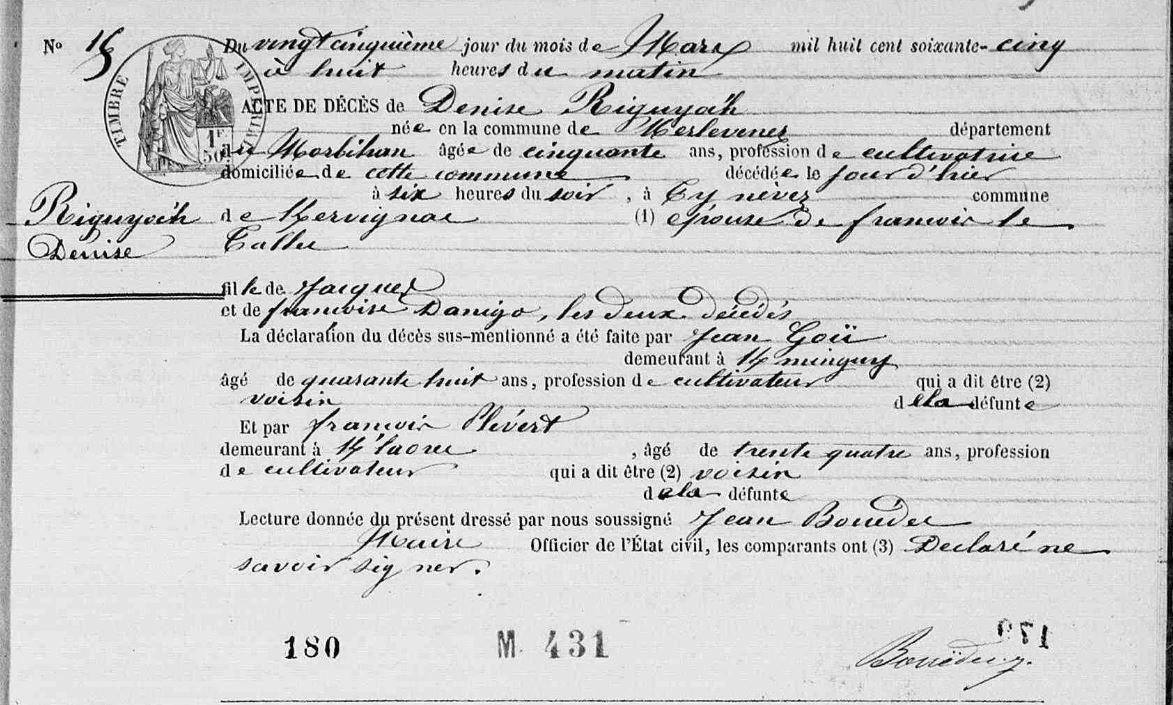 No 15
TIMBRE IMPÉRIAL
1F 50
Du vingt cinquième jour du mois de Mars mil huit cent soixante-cinq
à huit heures du matin
ACTE DE DÉCÈS de Denise Riguyoch
née en la commune de Merlevenez département
du Morbihan âgée de cinquante ans, profession de cultivatrice
domiciliée de cette commune décédée le jour d'hier
à six heures du soir, à Ty névez commune
Riguyoch
Denise
de Kervignac (1) épouse de françois le
Tallec
fille de Jacques
et de françoise Danigo, les deux décédés
La déclaration du décès sus-mentionné a été faite par Jean Goïc
demeurant à
âgé de quarante huit ans, profession de cultivateur qui a dit être (2)
voisin de la défunte
Et par françois Plévert
demeurant à , âgé de trente quatre ans, profession
de cultivateur qui a dit être (2) voisin
de la défunte
Lecture donnée du présent dressé par nous soussigné Jean Bouëdec
Maire Officier de l'État civil, les comparants ont (3) Declaré ne
savoir signer.
180 M 431 179